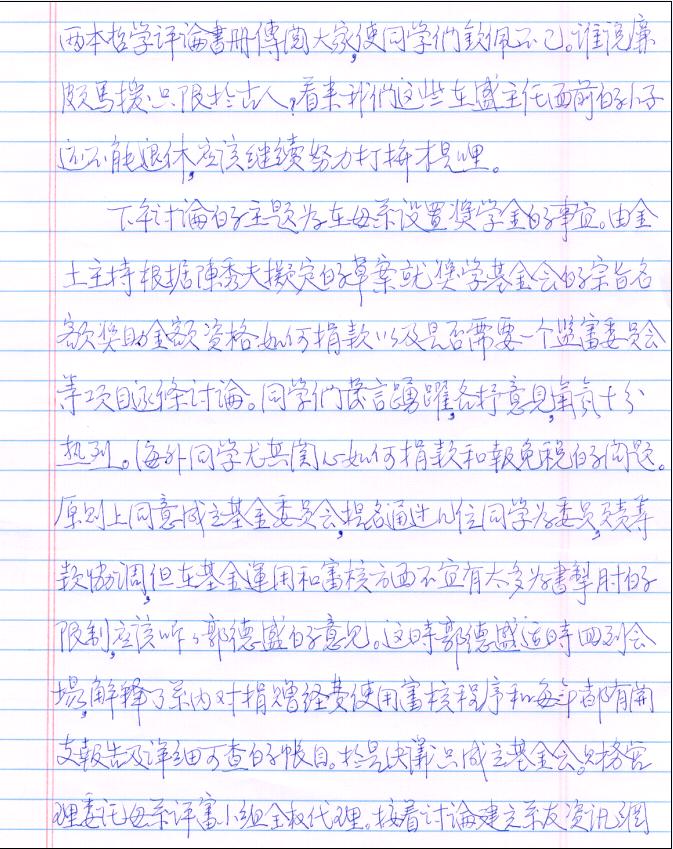 两本哲学评論書册傳閲大家,使同学們欽佩不已。谁说廉
頗馬援只限於古人,看来我們这些在盛主任面前的小子
还不能退休,应该继续努力打拚才是哩。
下午讨論的主题为在母系設置奖学金的事宜。由金
土主持根据陳秀夫擬定的草案就奖学基金会的宗旨名
额奖助金额资格如何捐款以及是否需要一个监審委员会
等项目逐條讨論。同学們发言踴躍,各抒意見,氣氛十分
热烈。海外同学尤其関心如何捐款和報免税的问题。
原则上同意成立基金委员会,提名通过几位同学为委员,负责筹
款協调,但在基金運用和審核方面不宜有太多书掣肘的
限制,应该听听郭德盛的意见。这时郭德盛适時回到会
場,解釋了系内对捐赠经费使用審核程序和每年都有開
支報告及详细可查的帳目。於是决議只成立基金会。财務管
理委託母系评審小组全权代理。接着讨論建立系友资讯網